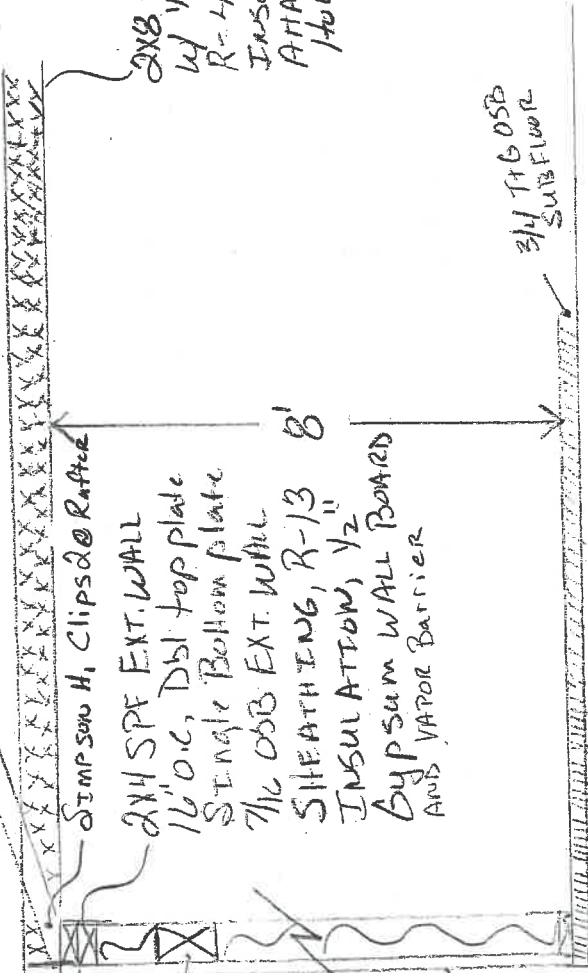 Simpson H1 Clips 2@ Rafter
2x4 SPF EXT. WALL
16" O.C, Dbl top plate
Single Bottom plate
7/16 OSB EXT. WALL
SHEATHING, R-13
INSULATION, 1/2"
Gypsum WALL BOARD
AND VAPOR Barrier
8'
2x8
W/
R-4
3/4 T+G OSB
SUBFLOOR